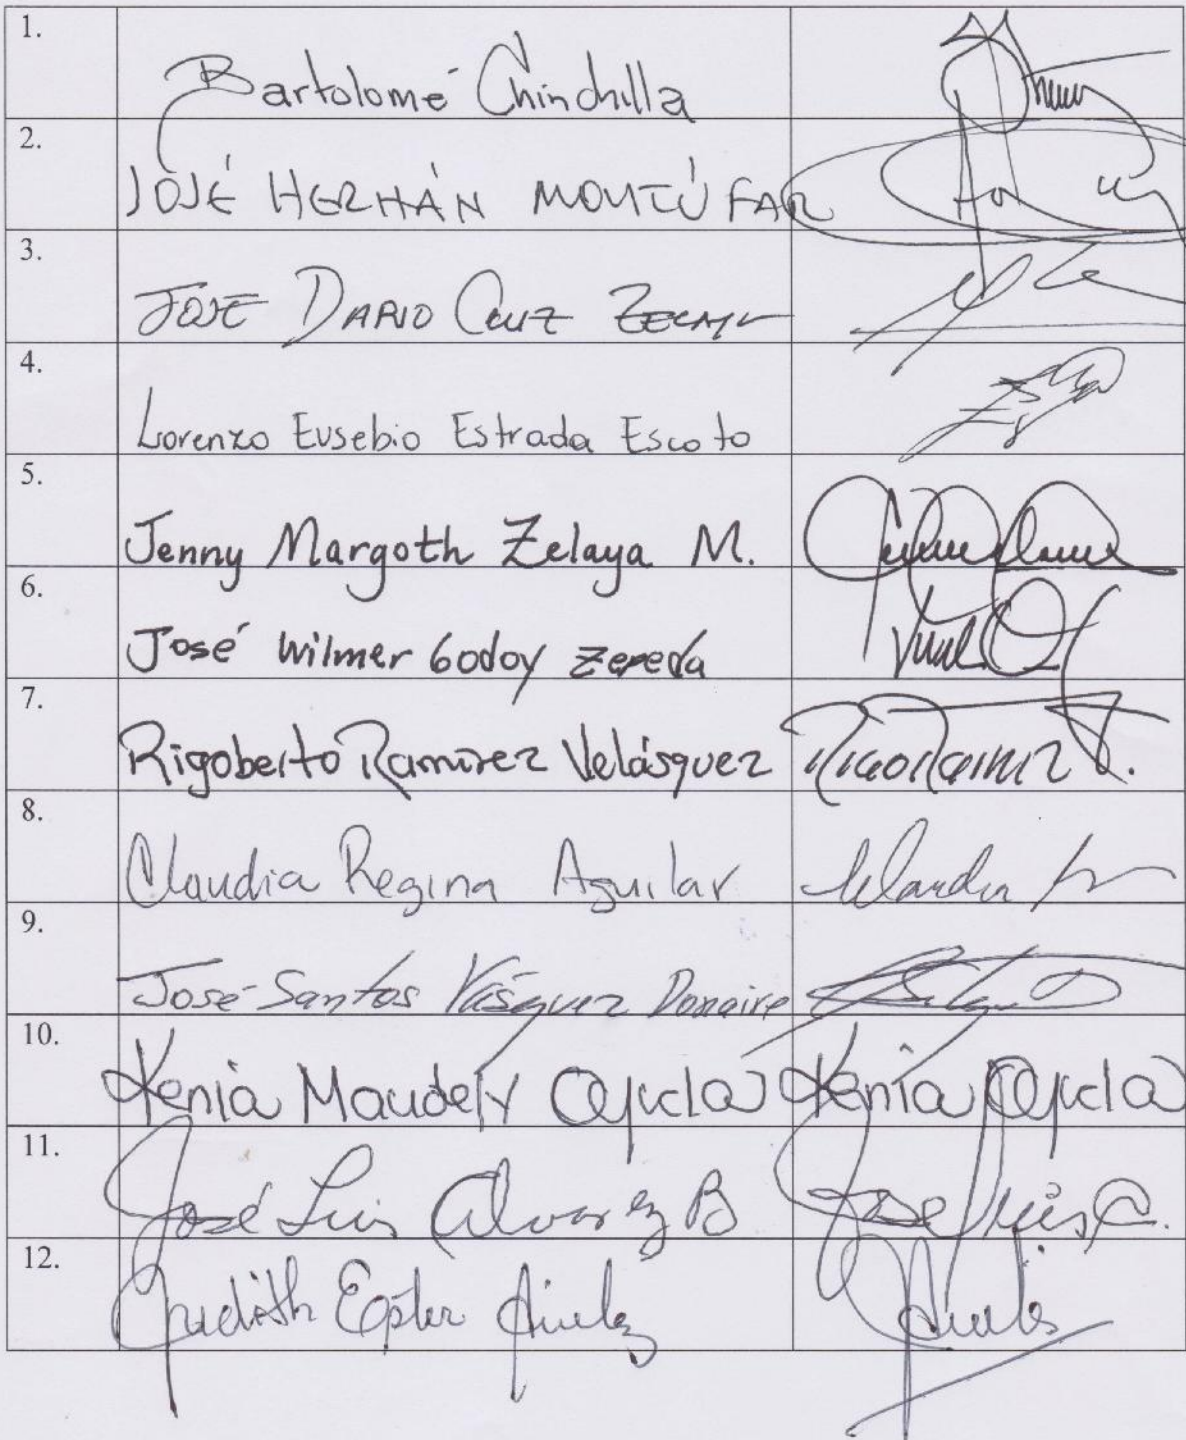 1. Bartolomé Chinchilla
2. JOSÉ HERNÁN MONTÚFAR
3. JOSE DARIO CRUZ ZELAYA
4. Lorenzo Eusebio Estrada Escoto
5. Jenny Margoth Zelaya M.
6. José Wilmer Godoy Zepeda
7. Rigoberto Ramírez Velásquez
8. Claudia Regina Aguilar Claudia
9. José Santos Vásquez Donaire
10. Kenia Maudely Kenia
11. José Luis Alvarez B José Luis A.
12. Judith Ester